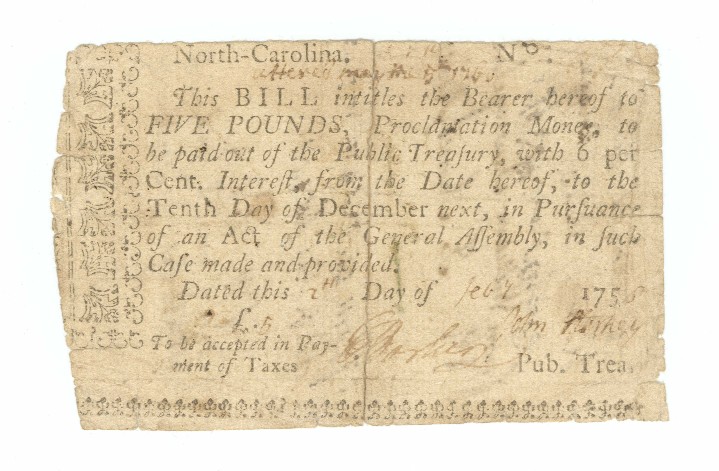 North-Carolina. No.
uttered may the 5th 1760
This BILL intitles the Bearer hereof to
FIVE POUNDS, Proclamation Money, to
be paid out of the Public Treaſury, with 6 per
Cent. Intereſt, from the Date hereof, to the
Tenth Day of December next, in Purſuance
of an Act of the General Aſſembly, in ſuch
Caſe made and provided.
Dated this 2th Day of feby 1756
£.5 John
To be accepted in Pay-
ment of Taxes Pub. Trea.